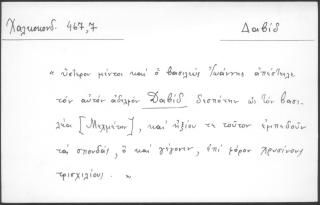 Χαλκοκονδ. 467,7
Δαβίδ
" ὕστερον μέντοι καὶ ὁ βασιλεὺς Ἰωάννης ἀπέστειλε
τὸν αὐτὸν ἀδελφὸν Δαβὶδ δεσπότην ὡς τὸν βασι-
λέα [Μεχμέτην], καὶ ἠξίου τε τοῦτον ἐμπεδοῦν
τὰς σπονδάς, ὃ καὶ γέγονεν, ἐπὶ φόρον χρυσίνους
τρισχιλίους. "